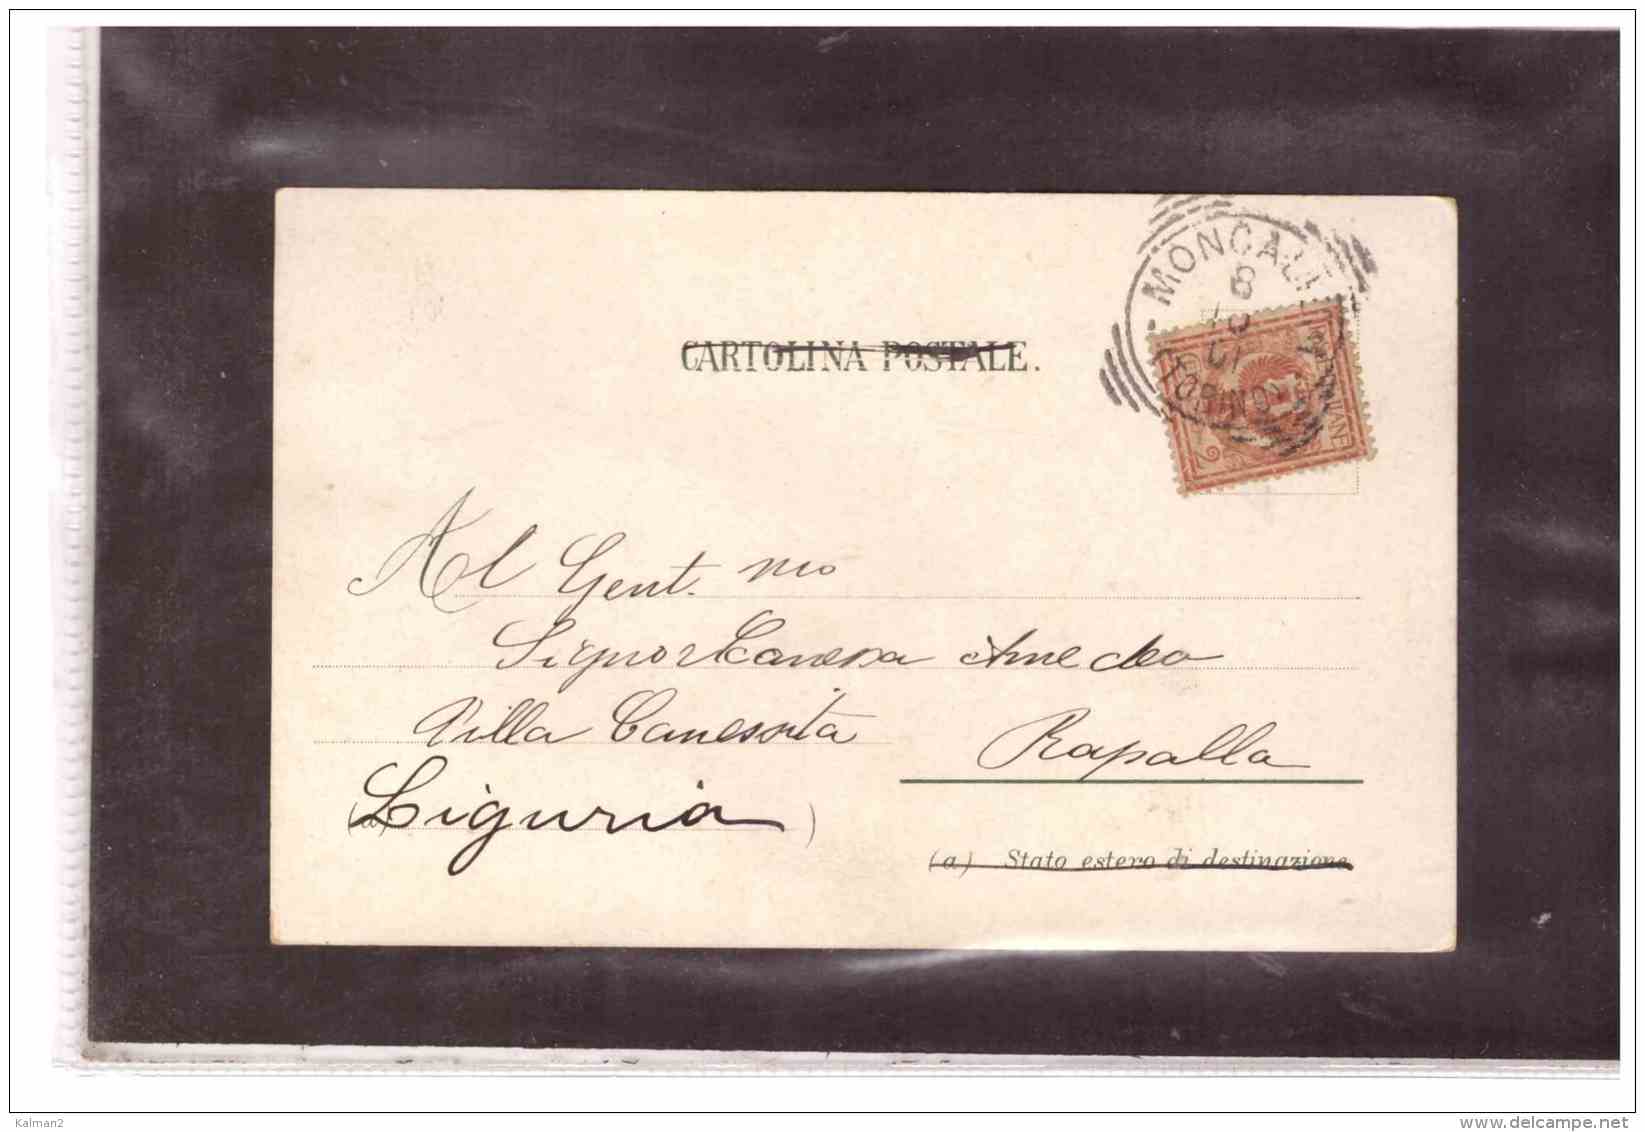 CARTOLINA POSTALE.
MONCALIERI
8
10
01
(TORINO)
Al Gent.mo
Signor Canessa Amedeo
Villa Canessita
Rapallo
(a) Liguria )
(a) Stato estero di destinazione
Kalman2
www.delcampe.net